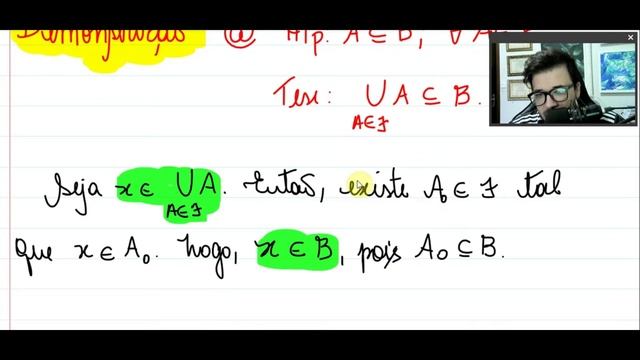 Demonstração @ Hip. A ⊆ B, ∀ A
Tese: ∪ A ⊆ B.
A∈F
Seja x ∈ ∪ A. Então, existe A₀ ∈ F tal
A∈F
que x ∈ A₀. Logo, x ∈ B, pois A₀ ⊆ B.